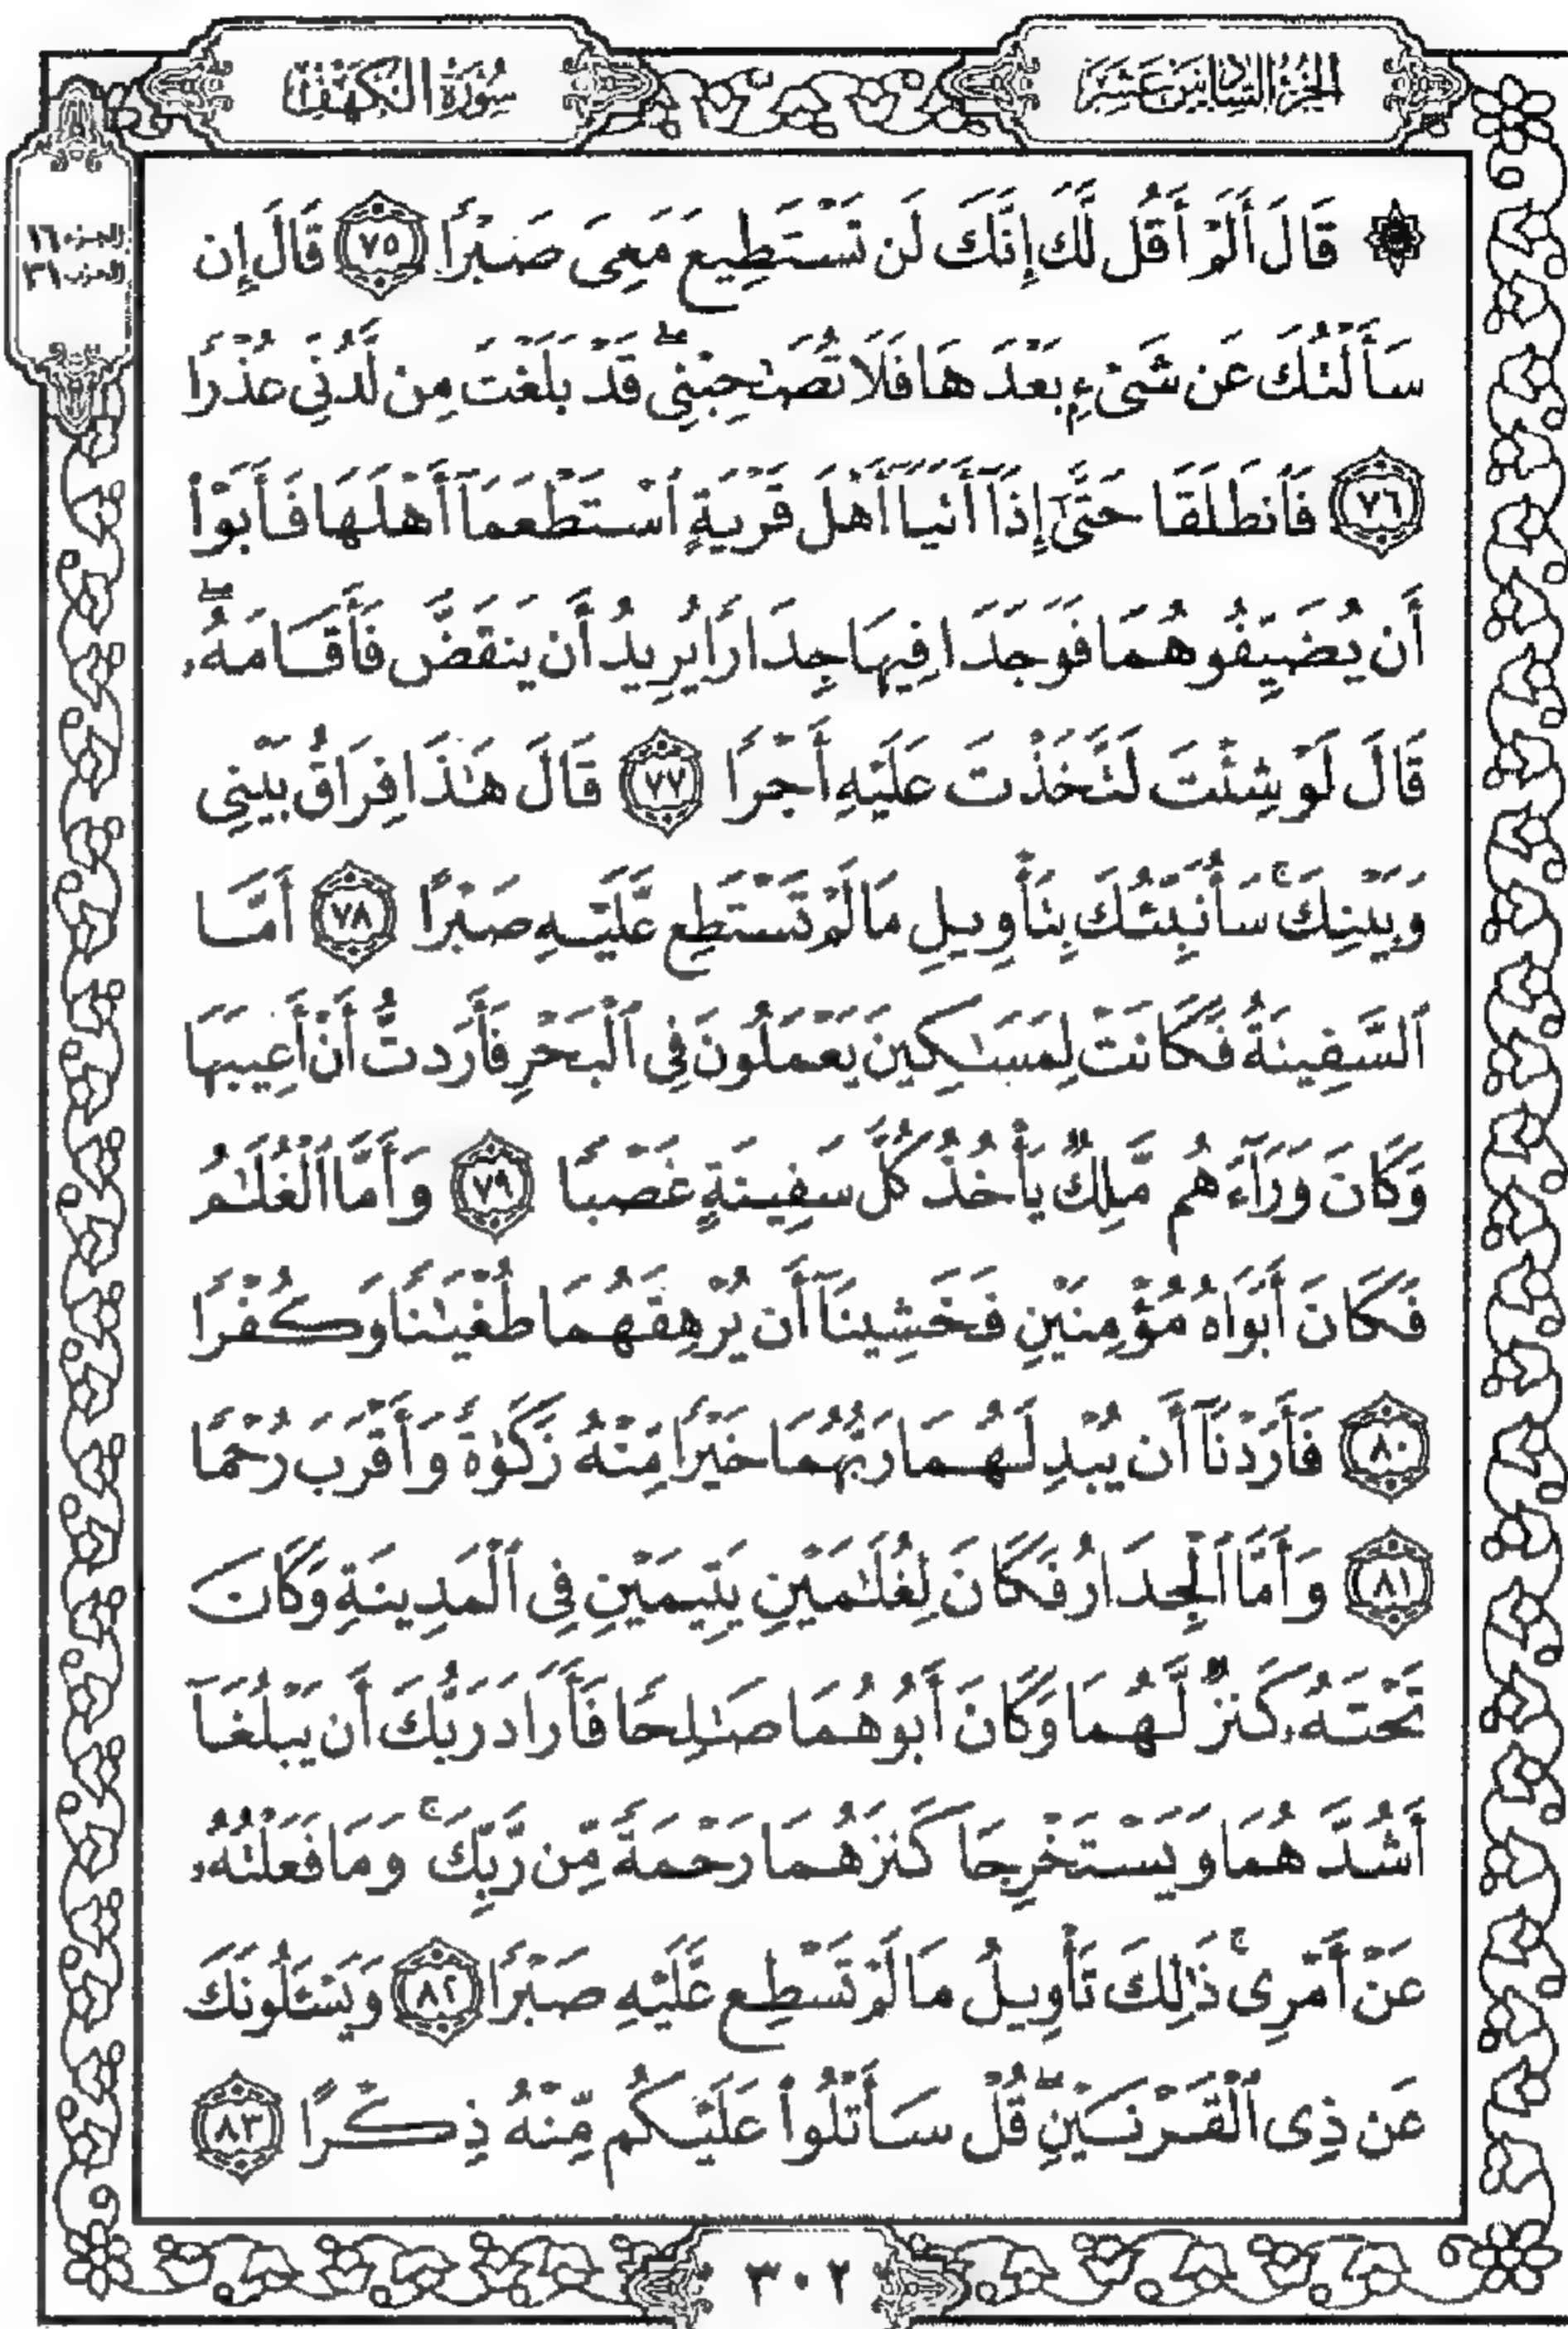 الجزء السادس عشر
سورة الكهف
الجزء ١٦
الحزب ٣١
۞ قَالَ أَلَمْ أَقُل لَّكَ إِنَّكَ لَن تَسْتَطِيعَ مَعِىَ صَبْرًا ٧٥ قَالَ إِن
سَأَلْتُكَ عَن شَىْءٍۭ بَعْدَهَا فَلَا تُصَٰحِبْنِى ۖ قَدْ بَلَغْتَ مِن لَّدُنِّى عُذْرًا
٧٦ فَٱنطَلَقَا حَتَّىٰٓ إِذَآ أَتَيَآ أَهْلَ قَرْيَةٍ ٱسْتَطْعَمَآ أَهْلَهَا فَأَبَوْا۟
أَن يُضَيِّفُوهُمَا فَوَجَدَا فِيهَا جِدَارًا يُرِيدُ أَن يَنقَضَّ فَأَقَامَهُۥ ۖ
قَالَ لَوْ شِئْتَ لَتَّخَذْتَ عَلَيْهِ أَجْرًا ٧٧ قَالَ هَٰذَا فِرَاقُ بَيْنِى
وَبَيْنِكَ ۚ سَأُنَبِّئُكَ بِتَأْوِيلِ مَا لَمْ تَسْتَطِع عَّلَيْهِ صَبْرًا ٧٨ أَمَّا
ٱلسَّفِينَةُ فَكَانَتْ لِمَسَٰكِينَ يَعْمَلُونَ فِى ٱلْبَحْرِ فَأَرَدتُّ أَنْ أَعِيبَهَا
وَكَانَ وَرَآءَهُم مَّلِكٌ يَأْخُذُ كُلَّ سَفِينَةٍ غَصْبًا ٧٩ وَأَمَّا ٱلْغُلَٰمُ
فَكَانَ أَبَوَاهُ مُؤْمِنَيْنِ فَخَشِينَآ أَن يُرْهِقَهُمَا طُغْيَٰنًا وَكُفْرًا
٨٠ فَأَرَدْنَآ أَن يُبْدِلَهُمَا رَبُّهُمَا خَيْرًا مِّنْهُ زَكَوٰةً وَأَقْرَبَ رُحْمًا
٨١ وَأَمَّا ٱلْجِدَارُ فَكَانَ لِغُلَٰمَيْنِ يَتِيمَيْنِ فِى ٱلْمَدِينَةِ وَكَانَ
تَحْتَهُۥ كَنزٌ لَّهُمَا وَكَانَ أَبُوهُمَا صَٰلِحًا فَأَرَادَ رَبُّكَ أَن يَبْلُغَآ
أَشُدَّهُمَا وَيَسْتَخْرِجَا كَنزَهُمَا رَحْمَةً مِّن رَّبِّكَ ۚ وَمَا فَعَلْتُهُۥ
عَنْ أَمْرِى ۚ ذَٰلِكَ تَأْوِيلُ مَا لَمْ تَسْطِع عَّلَيْهِ صَبْرًا ٨٢ وَيَسْـَٔلُونَكَ
عَن ذِى ٱلْقَرْنَيْنِ ۖ قُلْ سَأَتْلُوا۟ عَلَيْكُم مِّنْهُ ذِكْرًا ٨٣
٣٠٢